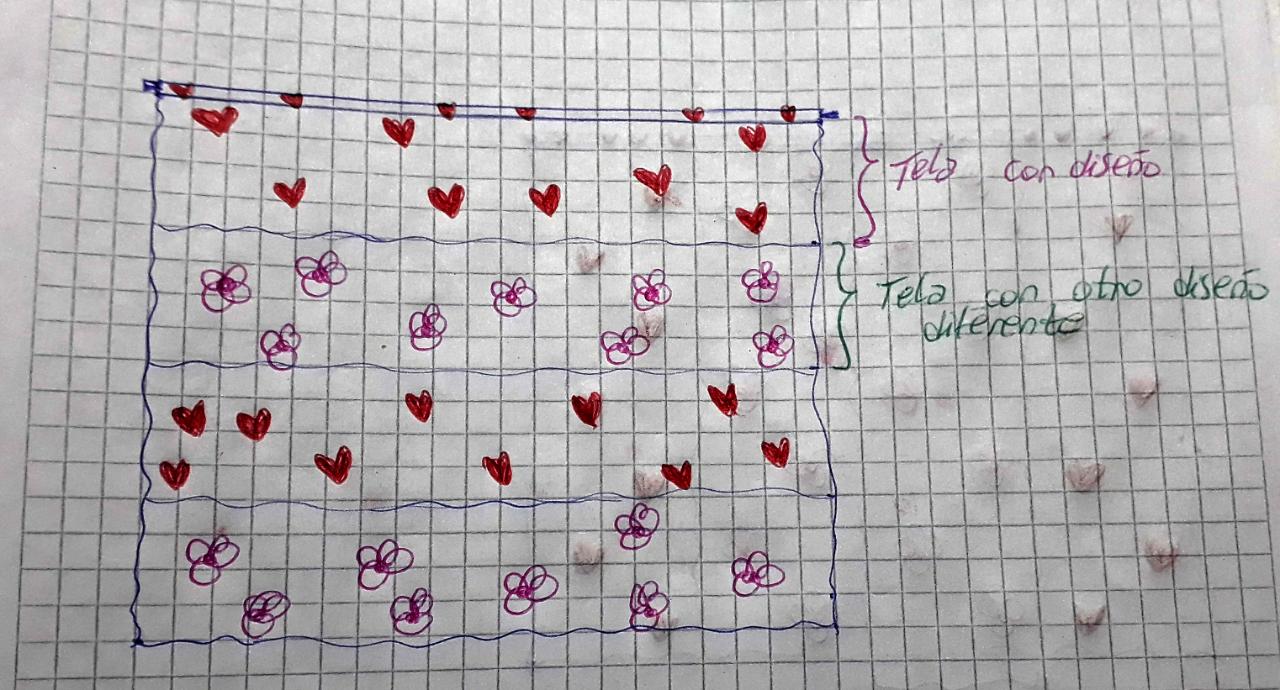 Tela con diseño
Tela con otro diseño
diferente